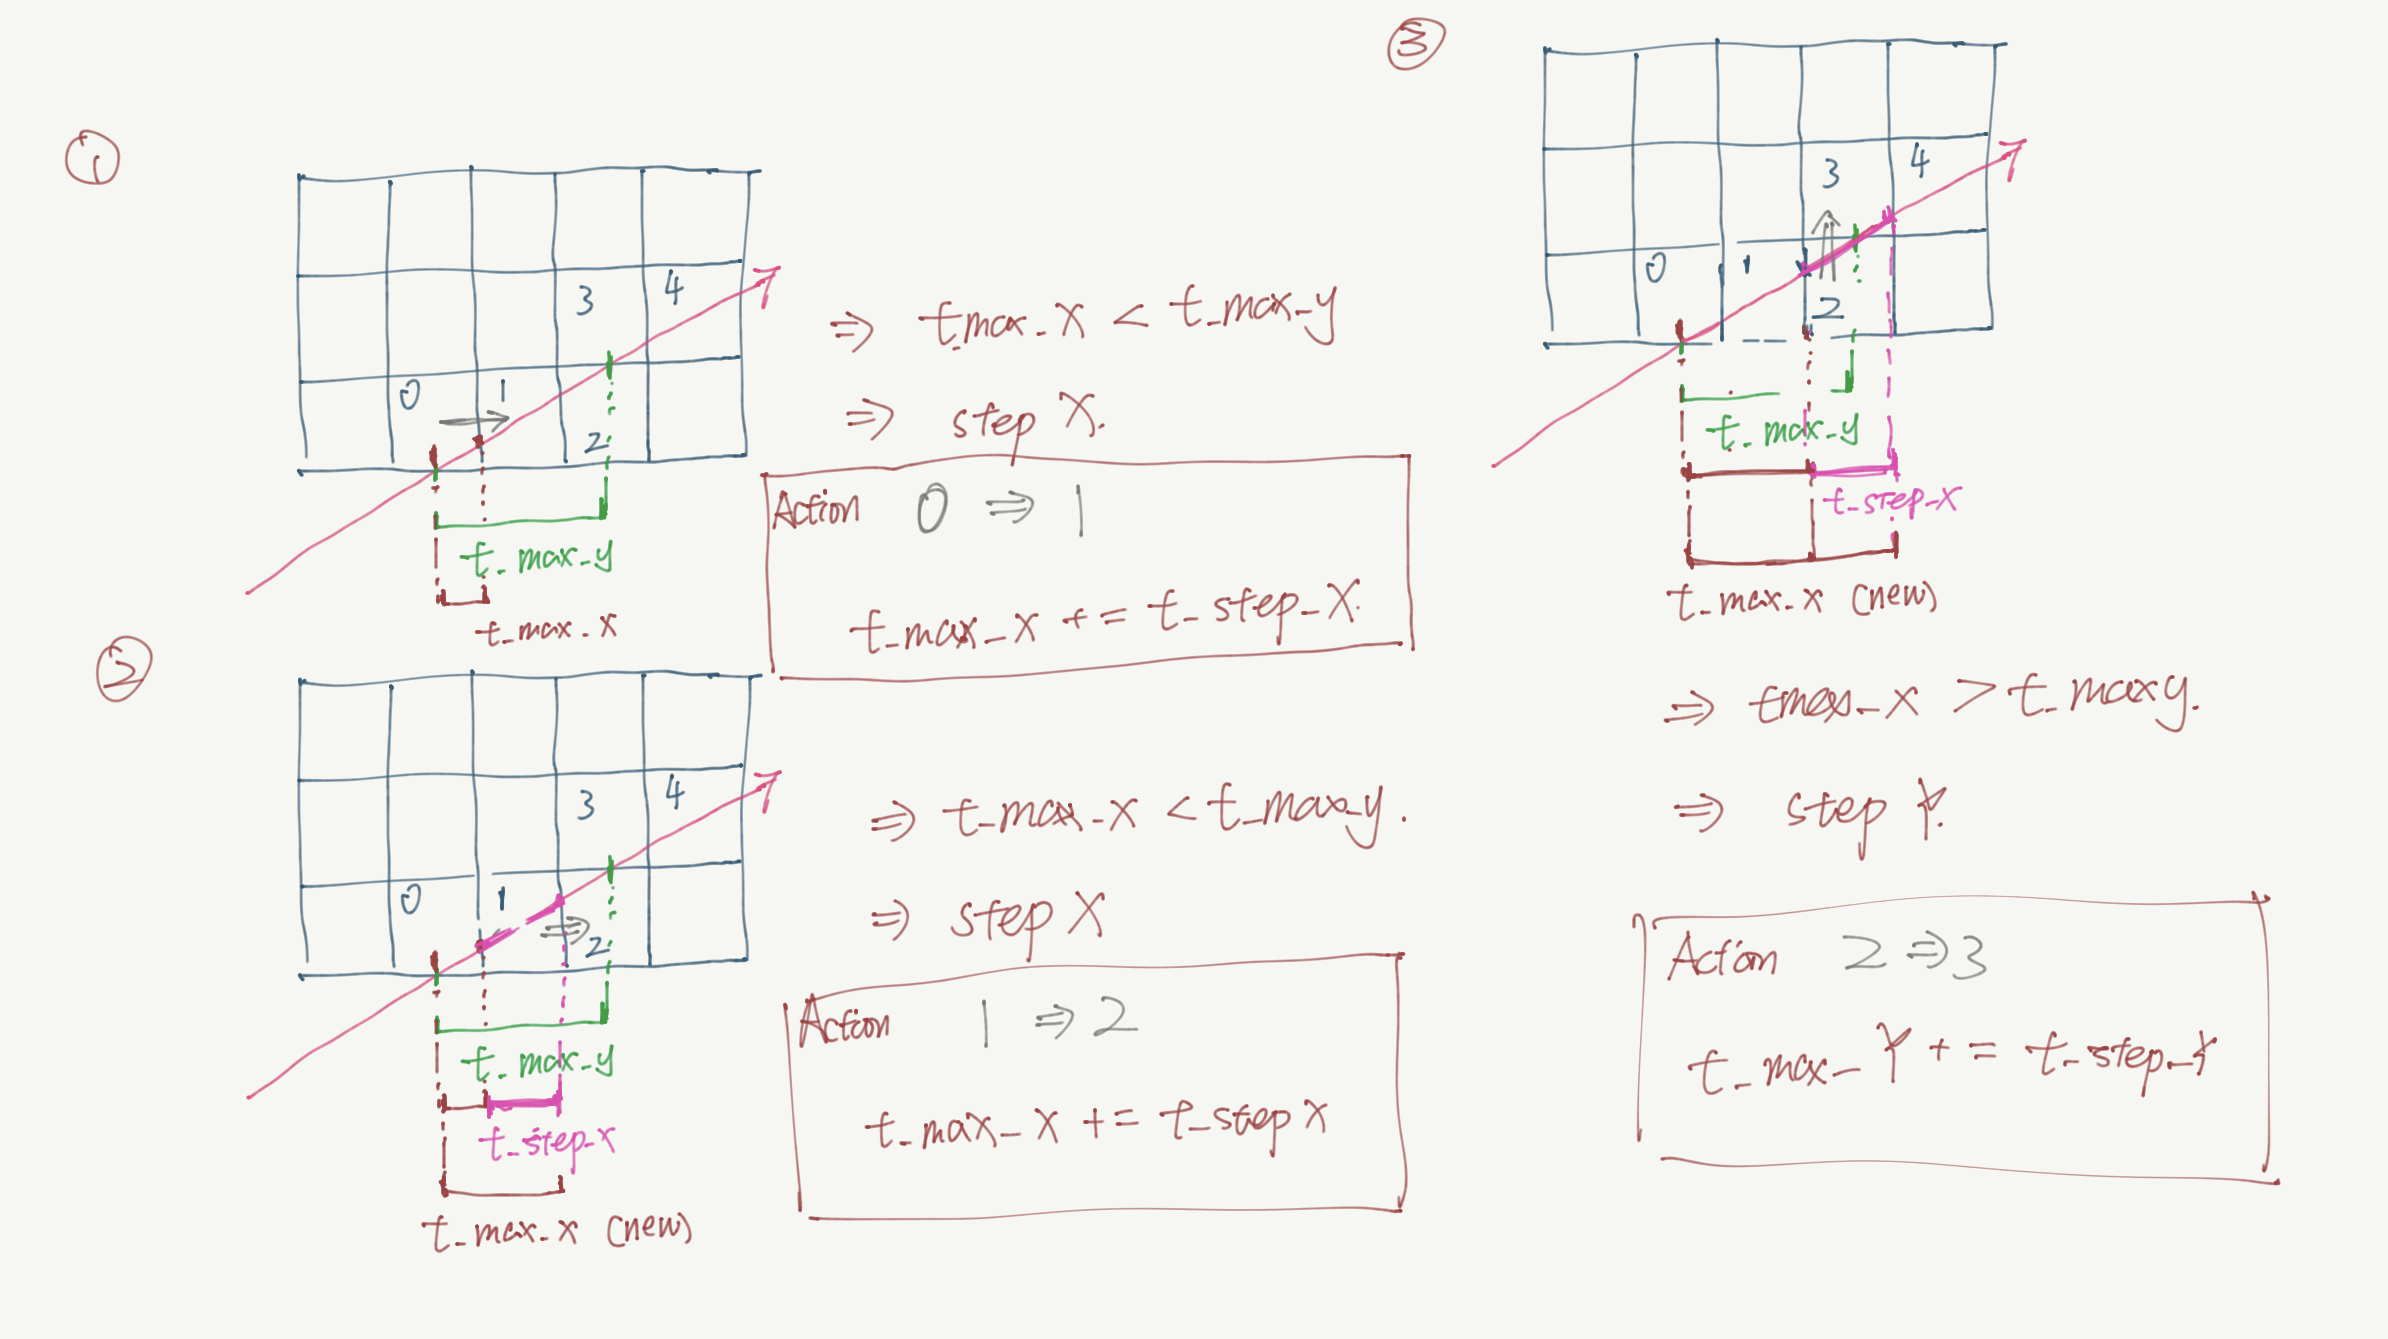 ①
3 4
0 1
2
t_max_y
t_max_x
⇒ t_max_x < t_max_y
⇒ step X.
Action 0 ⇒ 1
t_max_x += t_step_X.
②
3 4
0 1
2
t_max_y
t_step_x
t_max_x (new)
⇒ t_max_x < t_max_y.
⇒ step X
Action 1 ⇒ 2
t_max_x += t_step x
③
3 4
0 1
2
t_max_y
t_step_x
t_max_x (new)
⇒ tmax_x > t_maxy.
⇒ step Y.
Action 2 ⇒ 3
t_max_Y += t_step_Y